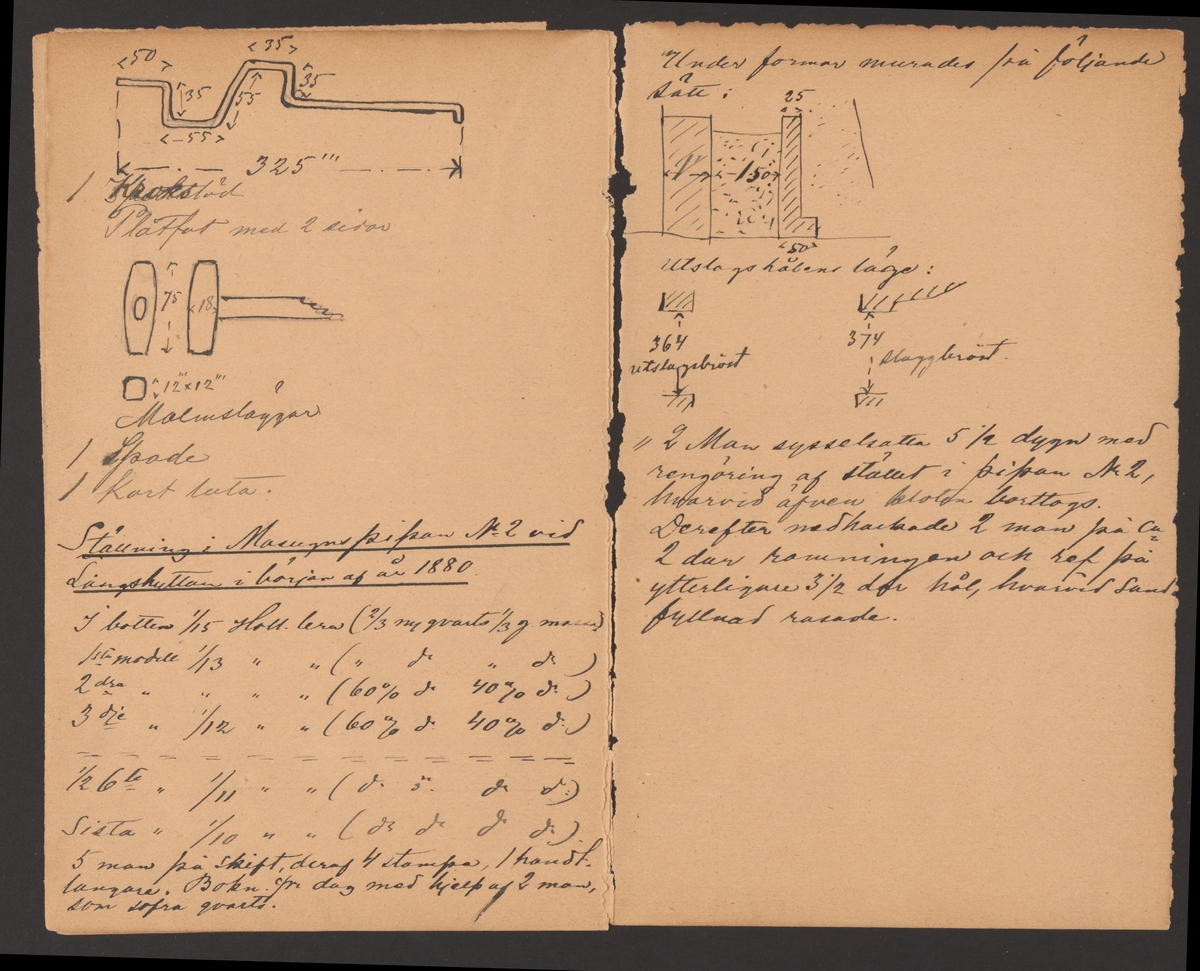 50 35 35
35 55
55
325'''
1 Krokstöd
Plåtfat med 2 sidor
75 18
12'''x12'''
Malmsläggor
1 Spade
1 Kort luta.
Ställning i Masugnspipan No 2 vid
Långshyttan i början af år 1880
I botten 1/15 Höll. lera (2/3 ny qvarts 1/3 g. massa)
1sta modell 1/13 " " ( " do " do )
2dra " " " " (60% do 40% do )
3dje " 1/12 " " (60% do 40% do )
1/2 6te " 1/11 " " ( do do do )
Sista " 1/10 " " ( do do do do )
5 man på skift, deraf 4 stampa, 1 handt-
langare. Bokn. pr dag med hjelp af 2 man,
som sofra qvarts.
Under formar murades på följande
sätt:
25
150
50
Utslagshålens läge:
364 374
utslagsbröst slaggbröst.
" 2 Man sysselsatta 5 1/2 dygn med
rengöring af stället i pipan No 2,
hvarvid äfven kloten borttogs.
Derefter nedhackade 2 man på ca
2 dar ramningen och ref på
ytterligare 3 1/2 dar hål, hvarvid Sand-
fyllnad rasade.